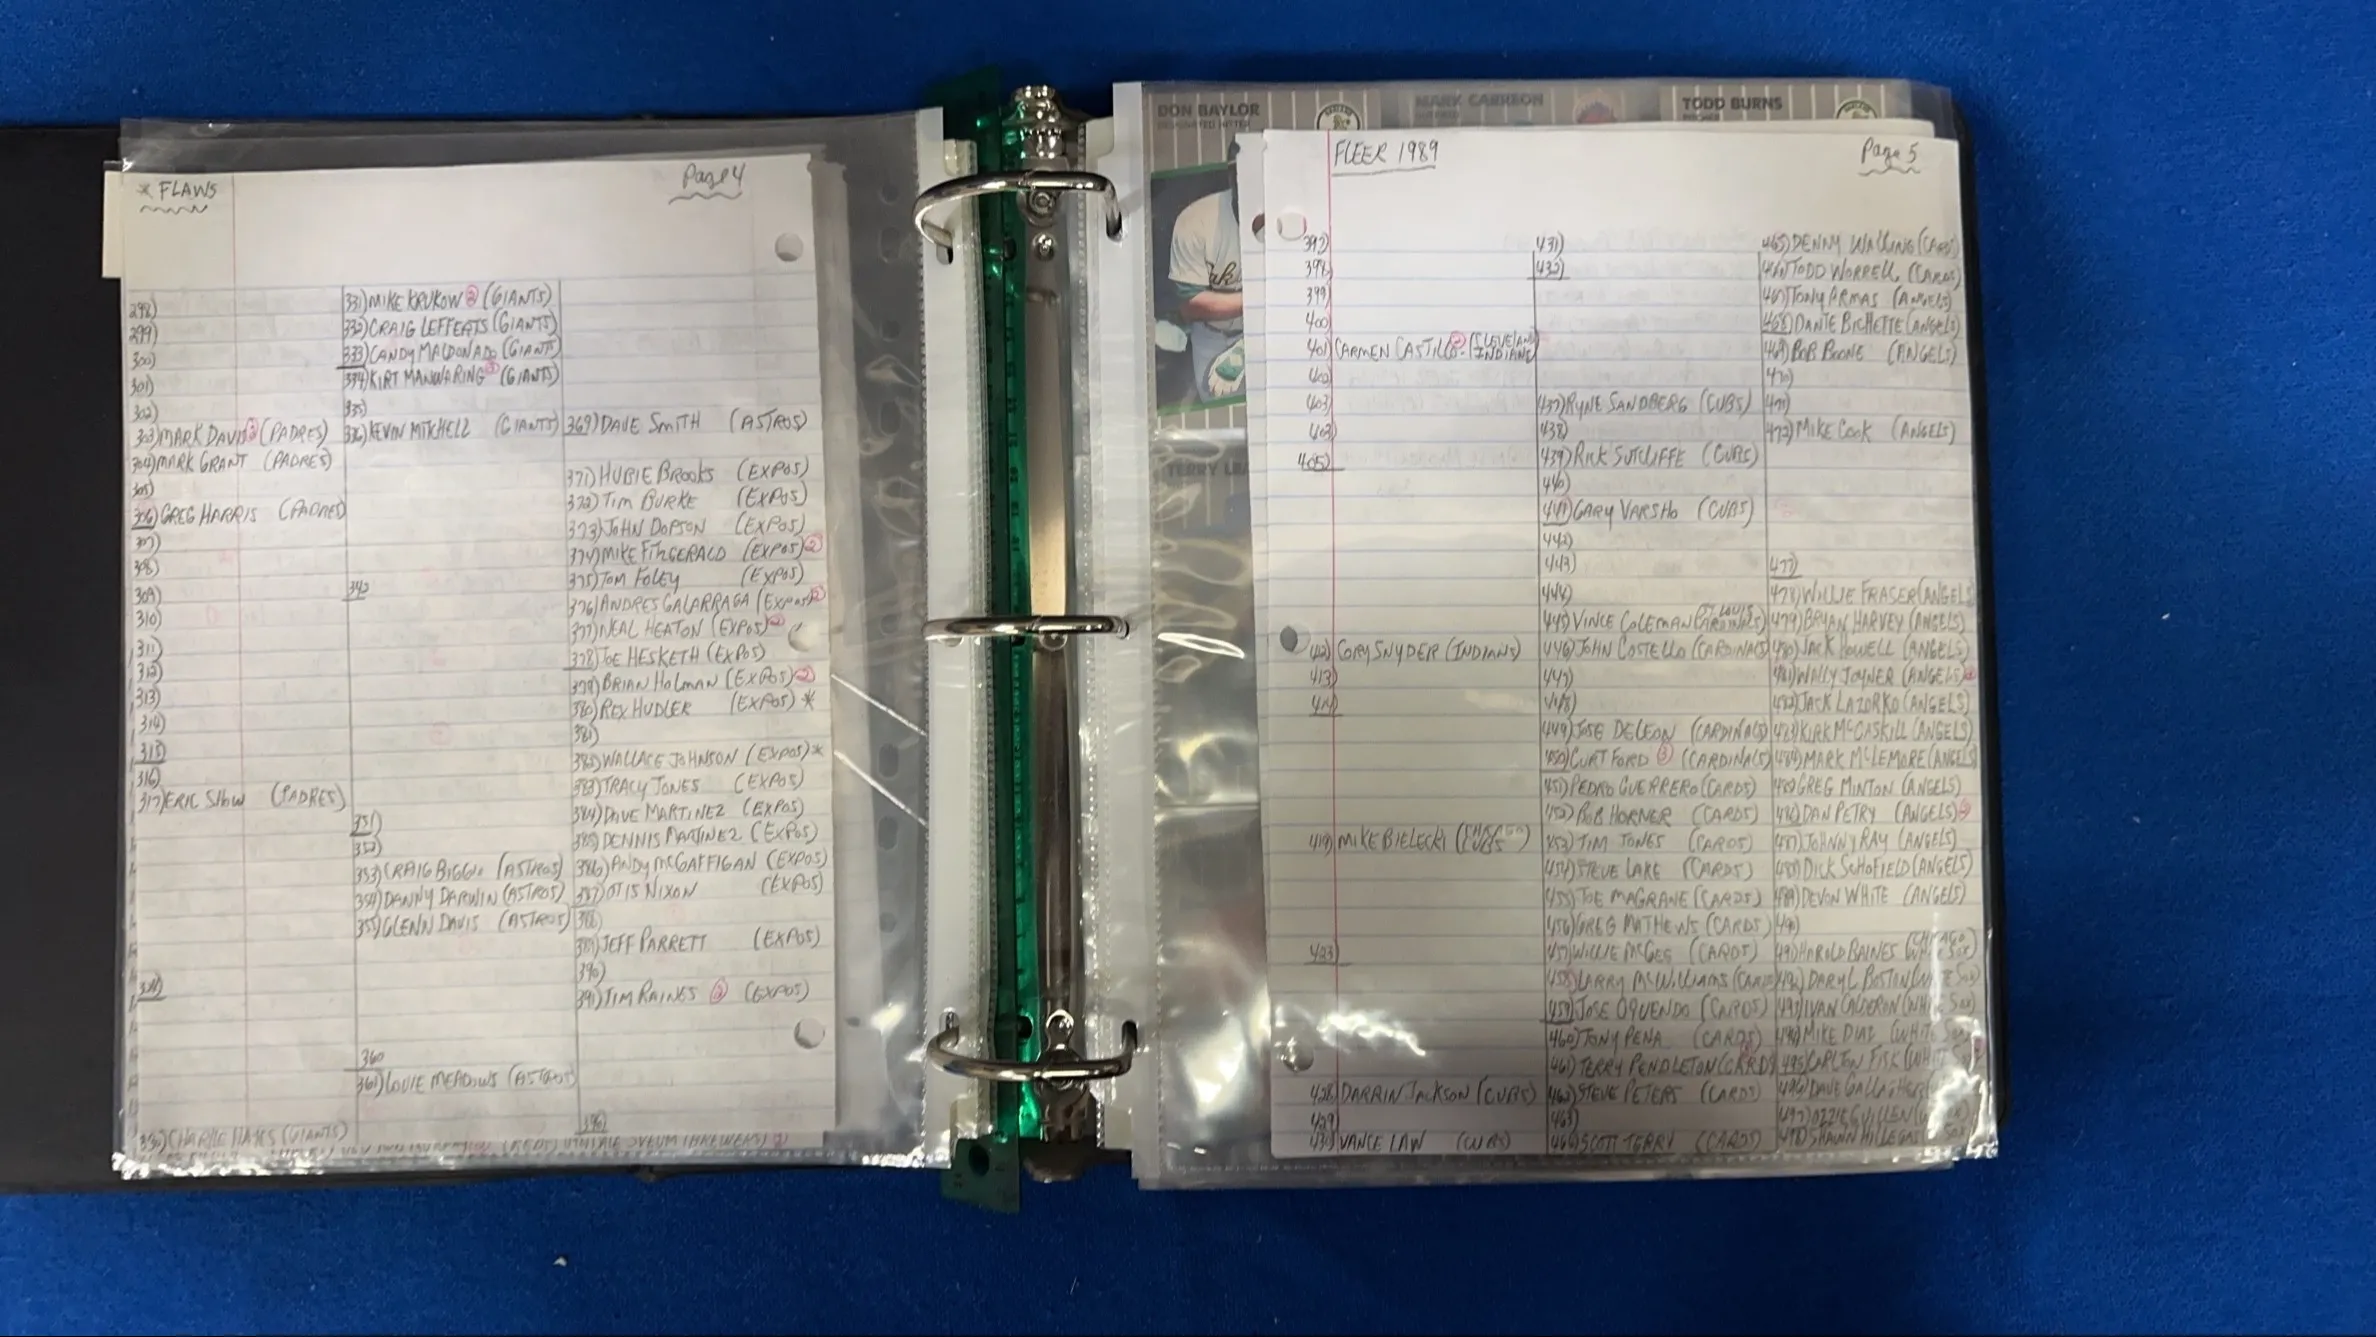 * FLAWS
Page 4
298)
299)
300)
301)
302)
303) MARK DAVIS ② (PADRES)
304) MARK GRANT (PADRES)
305)
306) GREG HARRIS (PADRES)
307)
308)
309)
310)
311)
312)
313)
314)
315)
316)
317) ERIC SHOW (PADRES)
330) CHARLIE HAYES (GIANTS)
331) MIKE KRUKOW ② (GIANTS)
332) CRAIG LEFFERTS (GIANTS)
333) CANDY MALDONADO (GIANTS
334) KIRT MANWARING (GIANTS)
335)
336) KEVIN MITCHELL (GIANTS)
342
351)
352)
353) CRAIG BIGGIO (ASTROS)
354) DANNY DARWIN (ASTROS)
355) GLENN DAVIS (ASTROS)
360
361) LOUIE MEADOWS (ASTROS)
369) DAVE SMITH (ASTROS)
371) HUBIE BROOKS (EXPOS)
372) TIM BURKE (EXPOS)
373) JOHN DOPSON (EXPOS)
374) MIKE FITZGERALD (EXPOS) ②
375) TOM FOLEY (EXPOS)
376) ANDRES GALARRAGA (EXPOS) ②
377) NEAL HEATON (EXPOS) ②
378) JOE HESKETH (EXPOS)
379) BRIAN HOLMAN (EXPOS) ②
380) REX HUDLER (EXPOS) *
381)
382) WALLACE JOHNSON (EXPOS) *
383) TRACY JONES (EXPOS)
384) DAVE MARTINEZ (EXPOS)
385) DENNIS MARTINEZ (EXPOS)
386) ANDY MCGAFFIGAN (EXPOS)
387) OTIS NIXON (EXPOS)
388)
389) JEFF PARRETT (EXPOS)
390)
391) TIM RAINES ② (EXPOS)
396)
DON BAYLOR
DESIGNATED HITTER
MARK CARREON
TODD BURNS
FLEER 1989
Page 5
398)
399)
400)
401) CARMEN CASTILLO ② (CLEVELAND INDIANS)
402)
403)
405)
412) CORY SNYDER (INDIANS)
413)
414)
419) MIKE BIELECKI (CHICAGO CUBS)
423)
428) DARRIN JACKSON (CUBS)
429)
430) VANCE LAW (CUBS)
431)
432)
437) RYNE SANDBERG (CUBS)
438)
439) RICK SUTCLIFFE (CUBS)
440)
441) GARY VARSHO (CUBS)
442)
443)
444)
445) VINCE COLEMAN (ST. LOUIS CARDINALS)
446) JOHN COSTELLO (CARDINALS)
447)
448)
449) JOSE DELEON (CARDINALS)
450) CURT FORD ③ (CARDINALS)
451) PEDRO GUERRERO (CARDS)
452) BOB HORNER (CARDS)
453) TIM JONES (CARDS)
454) STEVE LAKE (CARDS)
455) JOE MAGRANE (CARDS)
456) GREG MATHEWS (CARDS)
457) WILLIE MCGEE (CARDS)
458) LARRY MCWILLIAMS (CARDS
459) JOSE OQUENDO (CARDS)
460) TONY PENA (CARDS)
461) TERRY PENDLETON (CARDS)
462) STEVE PETERS (CARDS)
463)
464) SCOTT TERRY (CARDS)
465) DENNY WALLING (CARDS)
466) TODD WORRELL (CARDS)
467) TONY ARMAS (ANGELS)
468) DANTE BICHETTE (ANGELS)
469) BOB BOONE (ANGELS)
470)
471)
472) MIKE COOK (ANGELS)
477)
478) WILLIE FRASER (ANGELS
479) BRYAN HARVEY (ANGELS)
480) JACK HOWELL (ANGELS)
481) WALLY JOYNER (ANGELS)
482) JACK LAZORKO (ANGELS)
483) KIRK MCCASKILL (ANGELS)
484) MARK MCLEMORE (ANGELS)
485) GREG MINTON (ANGELS)
486) DAN PETRY (ANGELS)
487) JOHNNY RAY (ANGELS)
488) DICK SCHOFIELD (ANGELS)
489) DEVON WHITE (ANGELS)
490)
491) HAROLD BAINES (CHICAGO WHITE SOX)
492) DARYL BOSTON (WHITE SOX)
493) IVAN CALDERON (WHITE SOX)
494) MIKE DIAZ (WHITE SOX)
495) CARLTON FISK (WHITE SOX)
496) DAVE GALLAGHER
497) OZZIE GUILLEN
498) SHAWN HILLEGAS